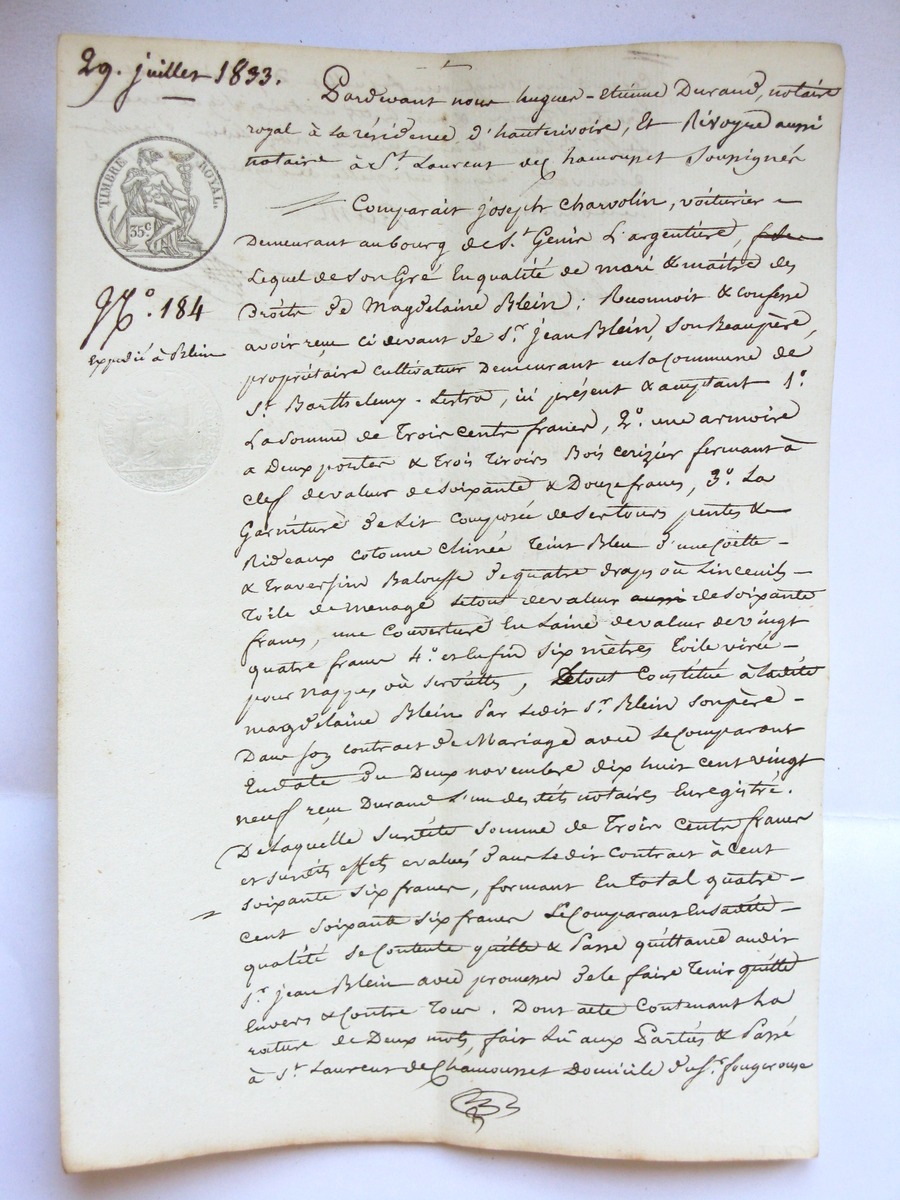 29. juillet 1833.
Pardevant nous hugues-etienne Durand, notaire
royal à la résidence d'hauterivoire, et Révoyre aussi
notaire à St. Laurent de Chamousset soussignés
TIMBRE ROYAL.
35c
Comparait joseph Charvolin, voiturier
Demeurant au bourg de St. Genis L'argentière,
Lequel de son Gré En qualité de mari & maître des
Droits de Magdelaine Blein; Reconnoit & confesse
No. 184
avoir reçu ci devant de Sr. jean Blein, son Beaupère,
Expedié à Blein
propriétaire cultivateur Demeurant en la Commune de
St. Barthelemy-Lestra, ici présent & acceptant 1o.
La Somme de Trois cents francs, 2o. une armoire
a Deux portes & Trois Tiroirs Bois cerizier fermant à
clef de valeur de soixante & Douze francs, 3o. La
Garniture de Lit Composée de ses tours pentes &
Rideaux cotonne chinée Teint Bleu d'une Coëtte
& Traversin Balouffe de quatre draps où Linceuils
Toile de menage le tout de valeur aussi de soixante
francs, une Couverture En Laine de valeur de vingt
quatre francs 4o. et Enfin six mètres Toile virée
pour Nappes où serviettes, Le tout Constitué à Ladite
magdelaine Blein Par Ledit Sr. Blein son père
Dans son contract de Mariage avec le Comparant
En date du Deux novembre dix huit cent vingt
neuf reçu Durand L'un desdits notaires Enregistré.
De Laquelle susdite somme de Trois cents francs
et susdits effets evalués dans Ledit Contract à cent
soixante six francs, formant En total quatre
cent soixante six francs Le Comparant En sadite
qualité se Contente quitte & Passe quittance audit
Sr. jean Blein avec promesse de le faire Tenir quitte
Envers & Contre Tous. Dont acte Contenant La
rature de Deux mots, fait Lû aux Parties & Passé
à St. Laurent de Chamousset Domicile du Sr. fougerouse